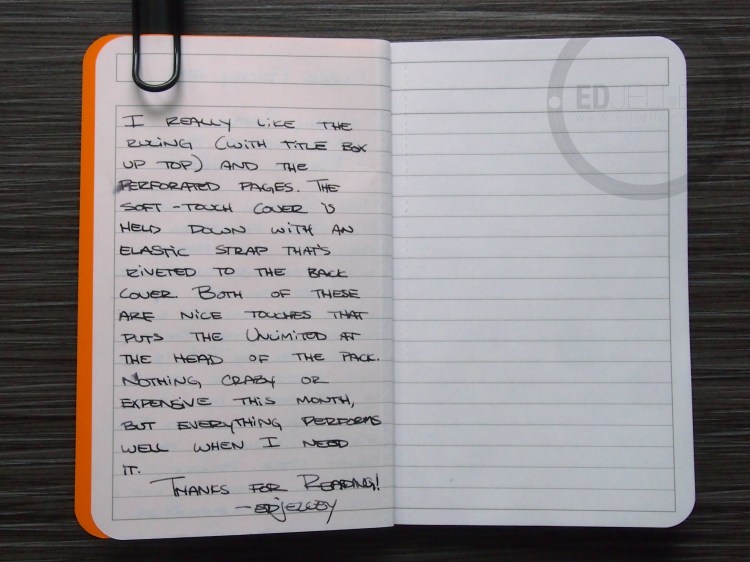 I REALLY LIKE THE
RULING (WITH TITLE BOX
UP TOP) AND THE
PERFORATED PAGES. THE
SOFT-TOUCH COVER IS
HELD DOWN WITH AN
ELASTIC STRAP THAT'S
RIVETED TO THE BACK
COVER. BOTH OF THESE
ARE NICE TOUCHES THAT
PUTS THE UNLIMITED AT
THE HEAD OF THE PACK.
NOTHING CRAZY OR
EXPENSIVE THIS MONTH,
BUT EVERYTHING PERFORMS
WELL WHEN I NEED
IT.
THANKS FOR READING!
-edjelley
EDJELLE